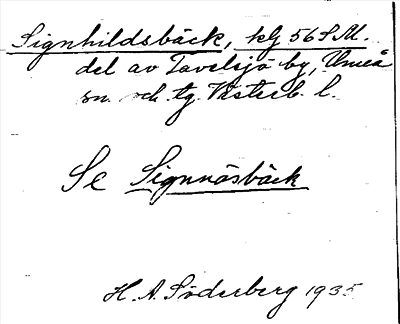 Signhildsbäck, klg 56 S.M.
del av Tavelsjö by, Umeå
sn. och tg. Västerb. l.
Se Signnäsbäck
H. A. Söderberg 1935